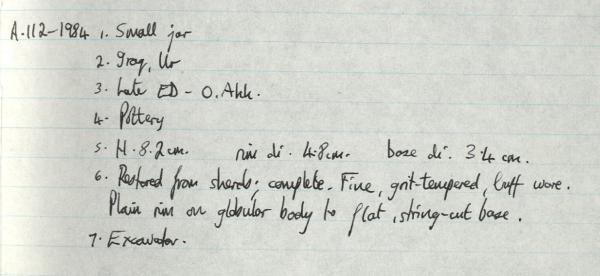 A.112-1984 1. Small jar
2. Iraq, Ur
3. Late ED - O. Akk.
4. Pottery
5. H. 8.2 cm. rim di. 4.8 cm. base di. 3.4 cm.
6. Restored from sherds; complete. Fine, grit-tempered, buff ware.
Plain rim on globular body to flat, string-cut base.
7. Excavator.